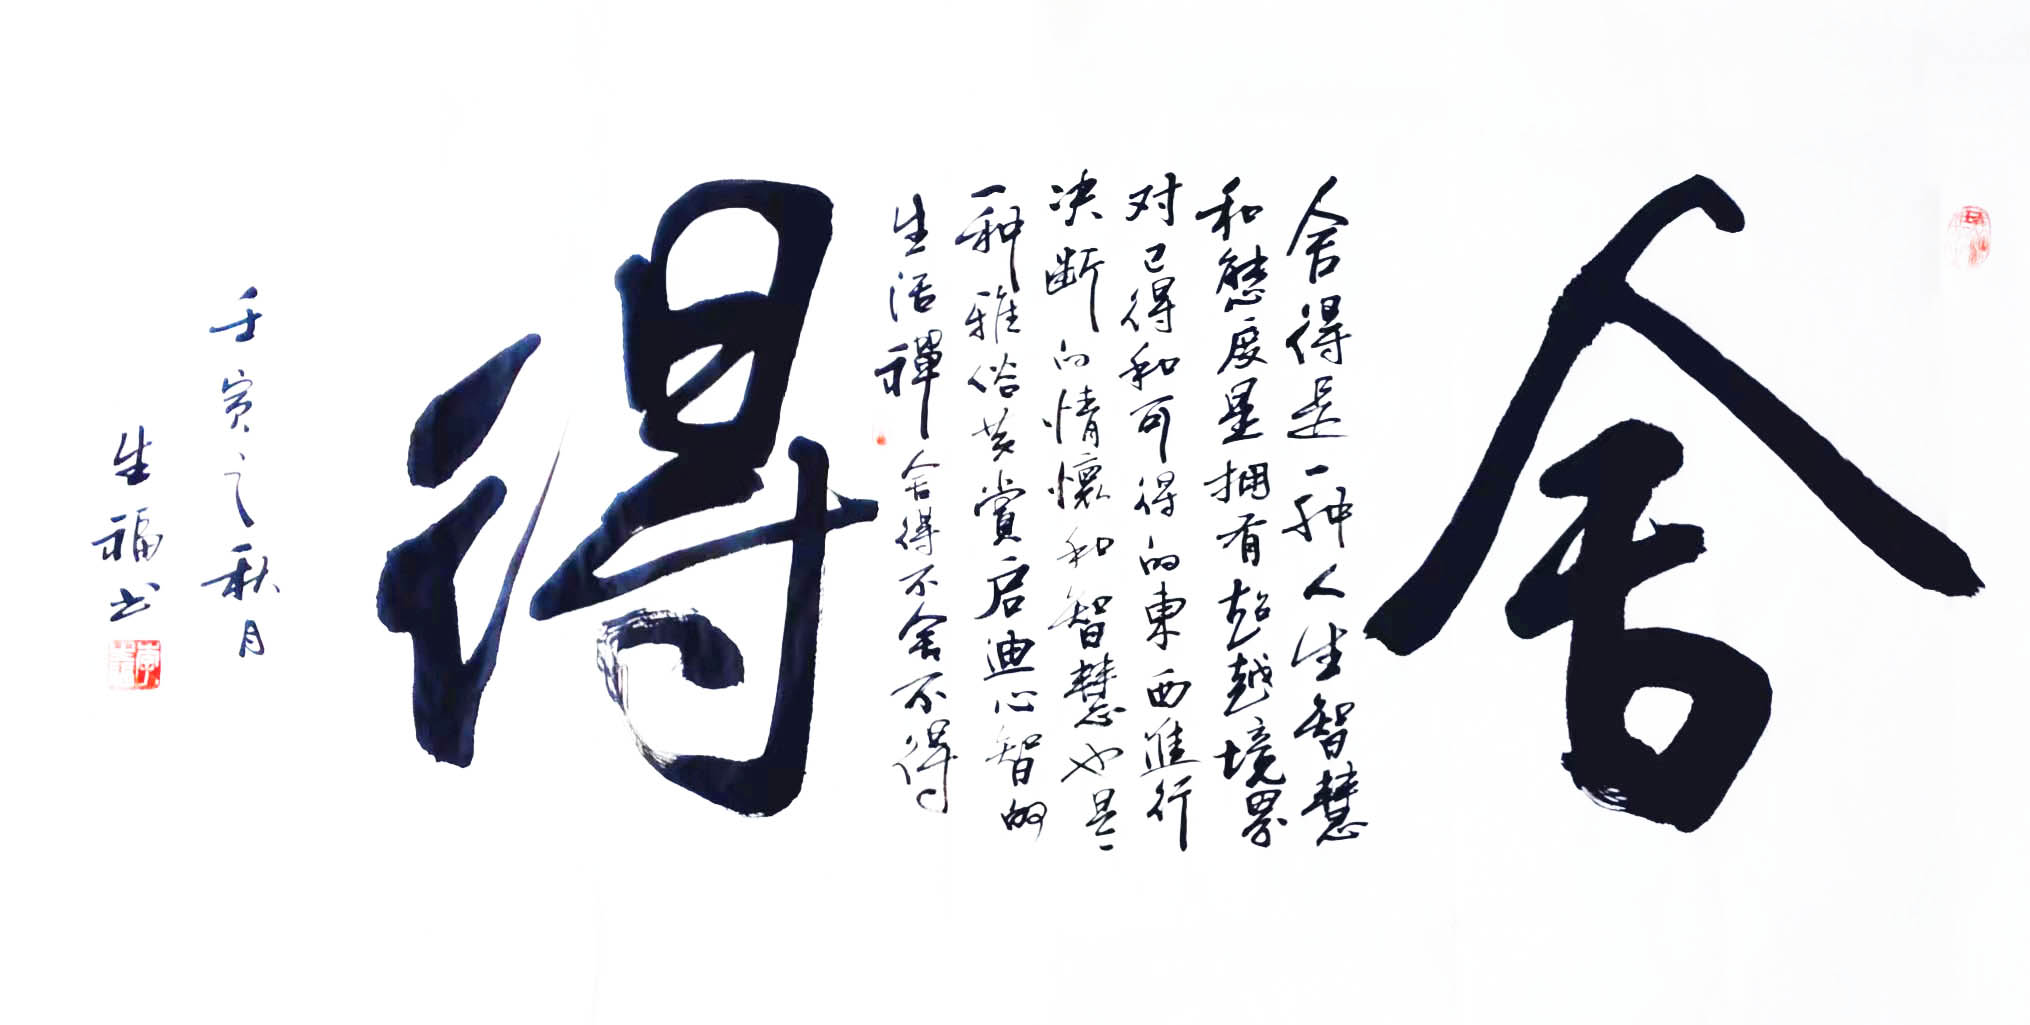 舍
舍得是一种人生智慧
和態度是拥有超越境界
对已得和可得的東西進行
决断的情懷和智慧也是一
一种雅俗共賞启迪心智的
生活禪舍得不舍不得
得
壬寅之秋月
生福书